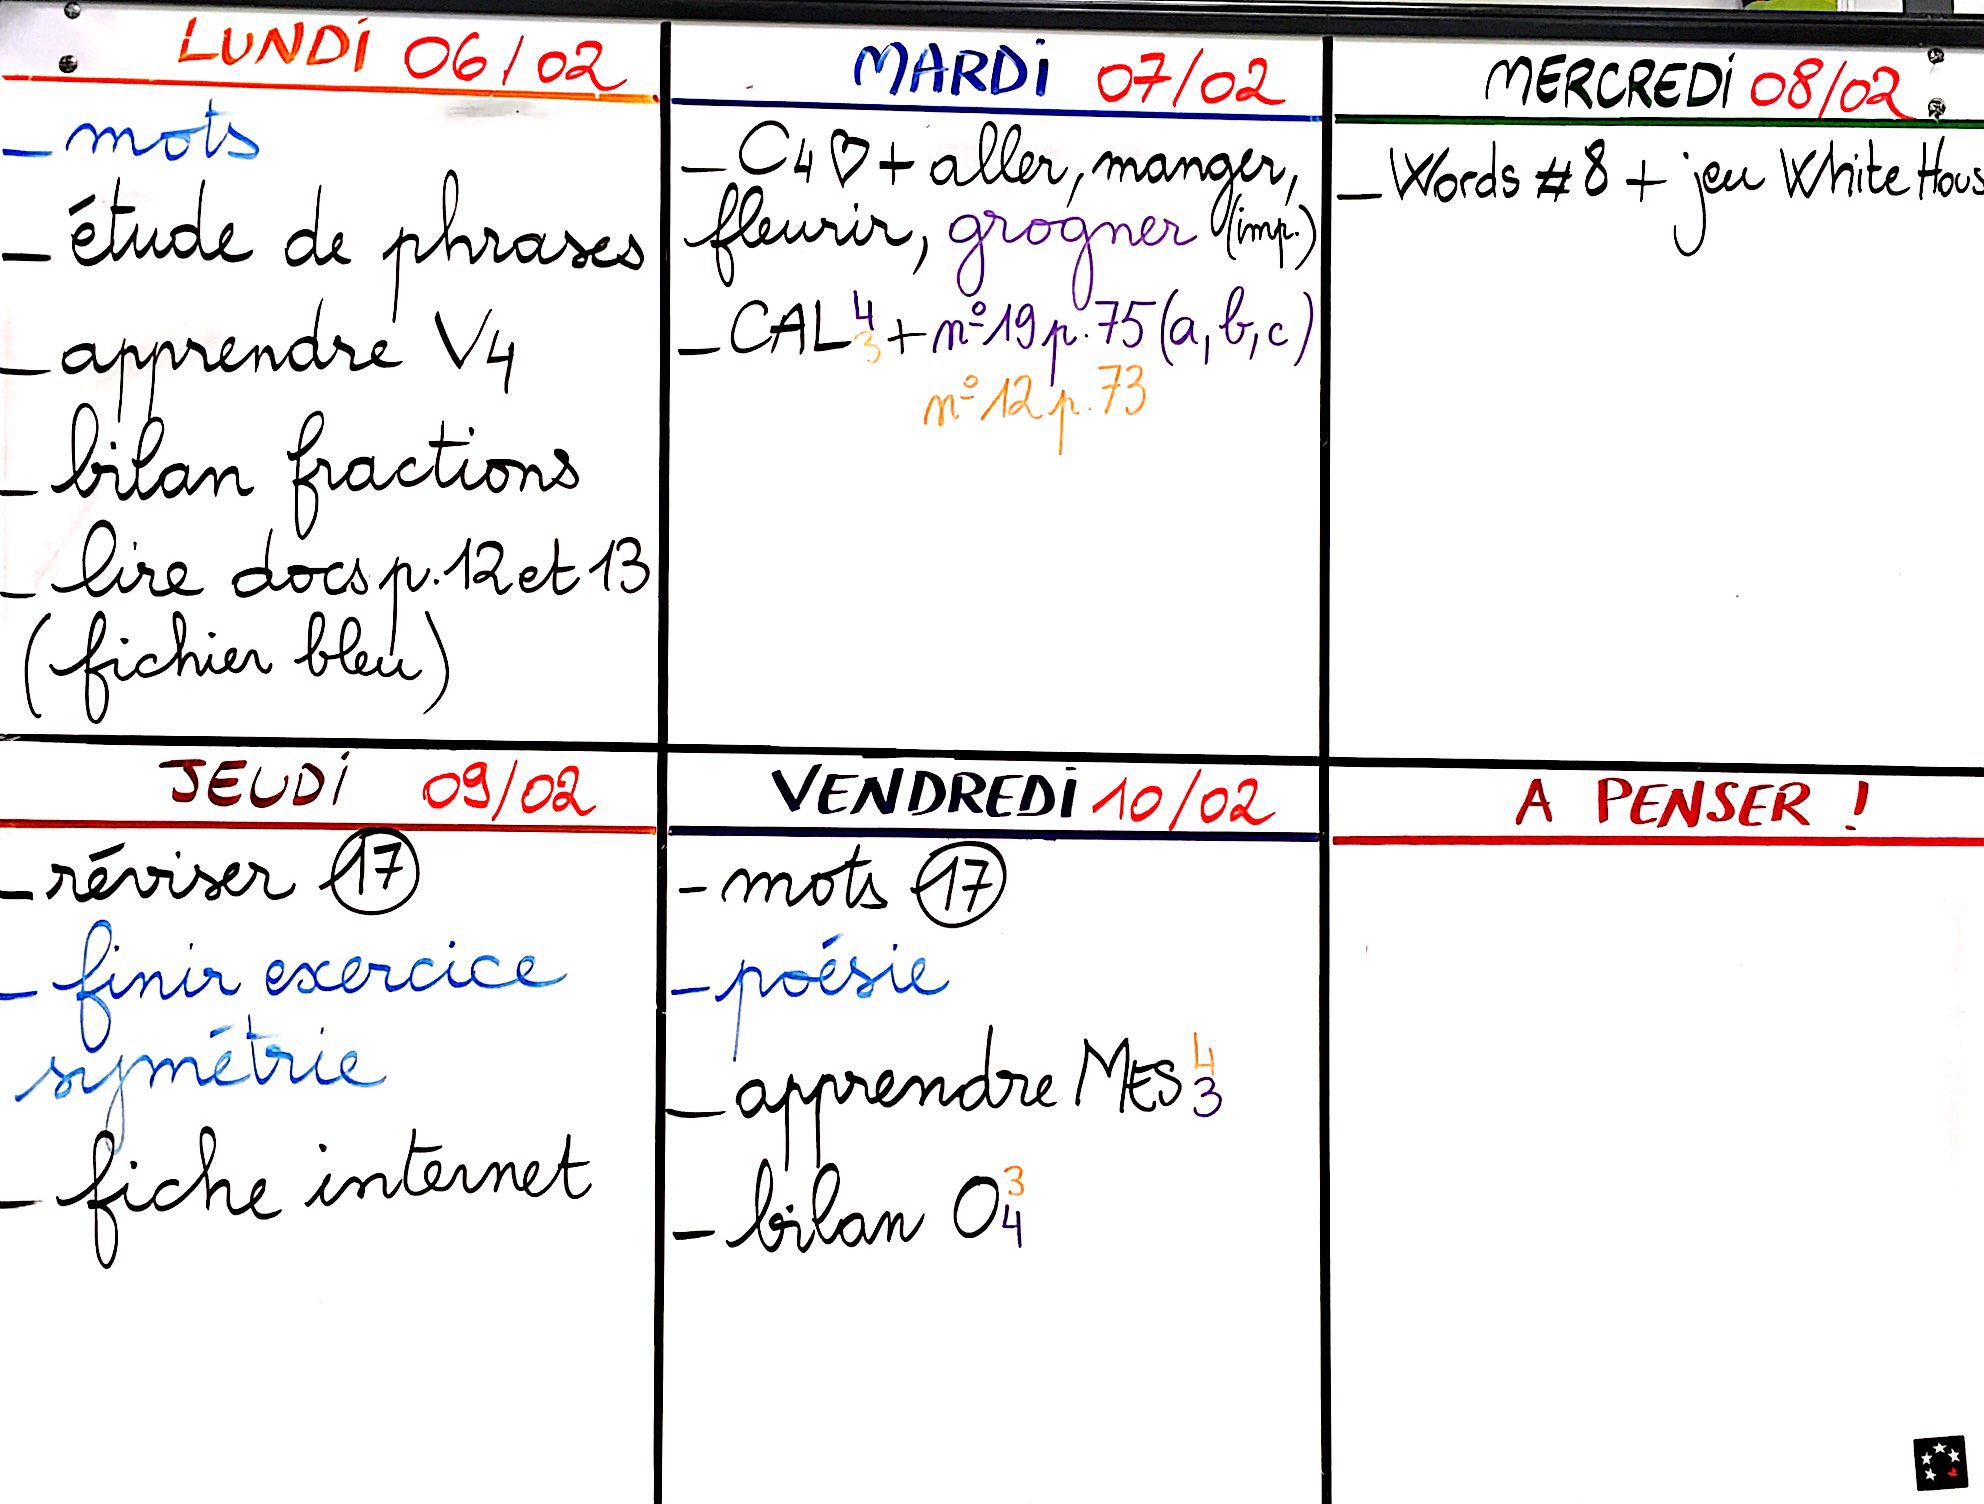 LUNDI 06/02
- mots
- étude de phrases
- apprendre V4
- bilan fractions
- lire docs p.12 et 13
(fichier bleu)
MARDI 07/02
- C4 ♡ + aller, manger,
fleurir, grogner (imp.)
- CAL 4 3 + n°19 p.75 (a, b, c)
n°12 p.73
MERCREDI 08/02
- Words #8 + jeu White Hous
JEUDI 09/02
- réviser 17
- finir exercice
symétrie
- fiche internet
VENDREDI 10/02
- mots 17
- poésie
- apprendre MES 4 3
- bilan O 3 4
A PENSER !